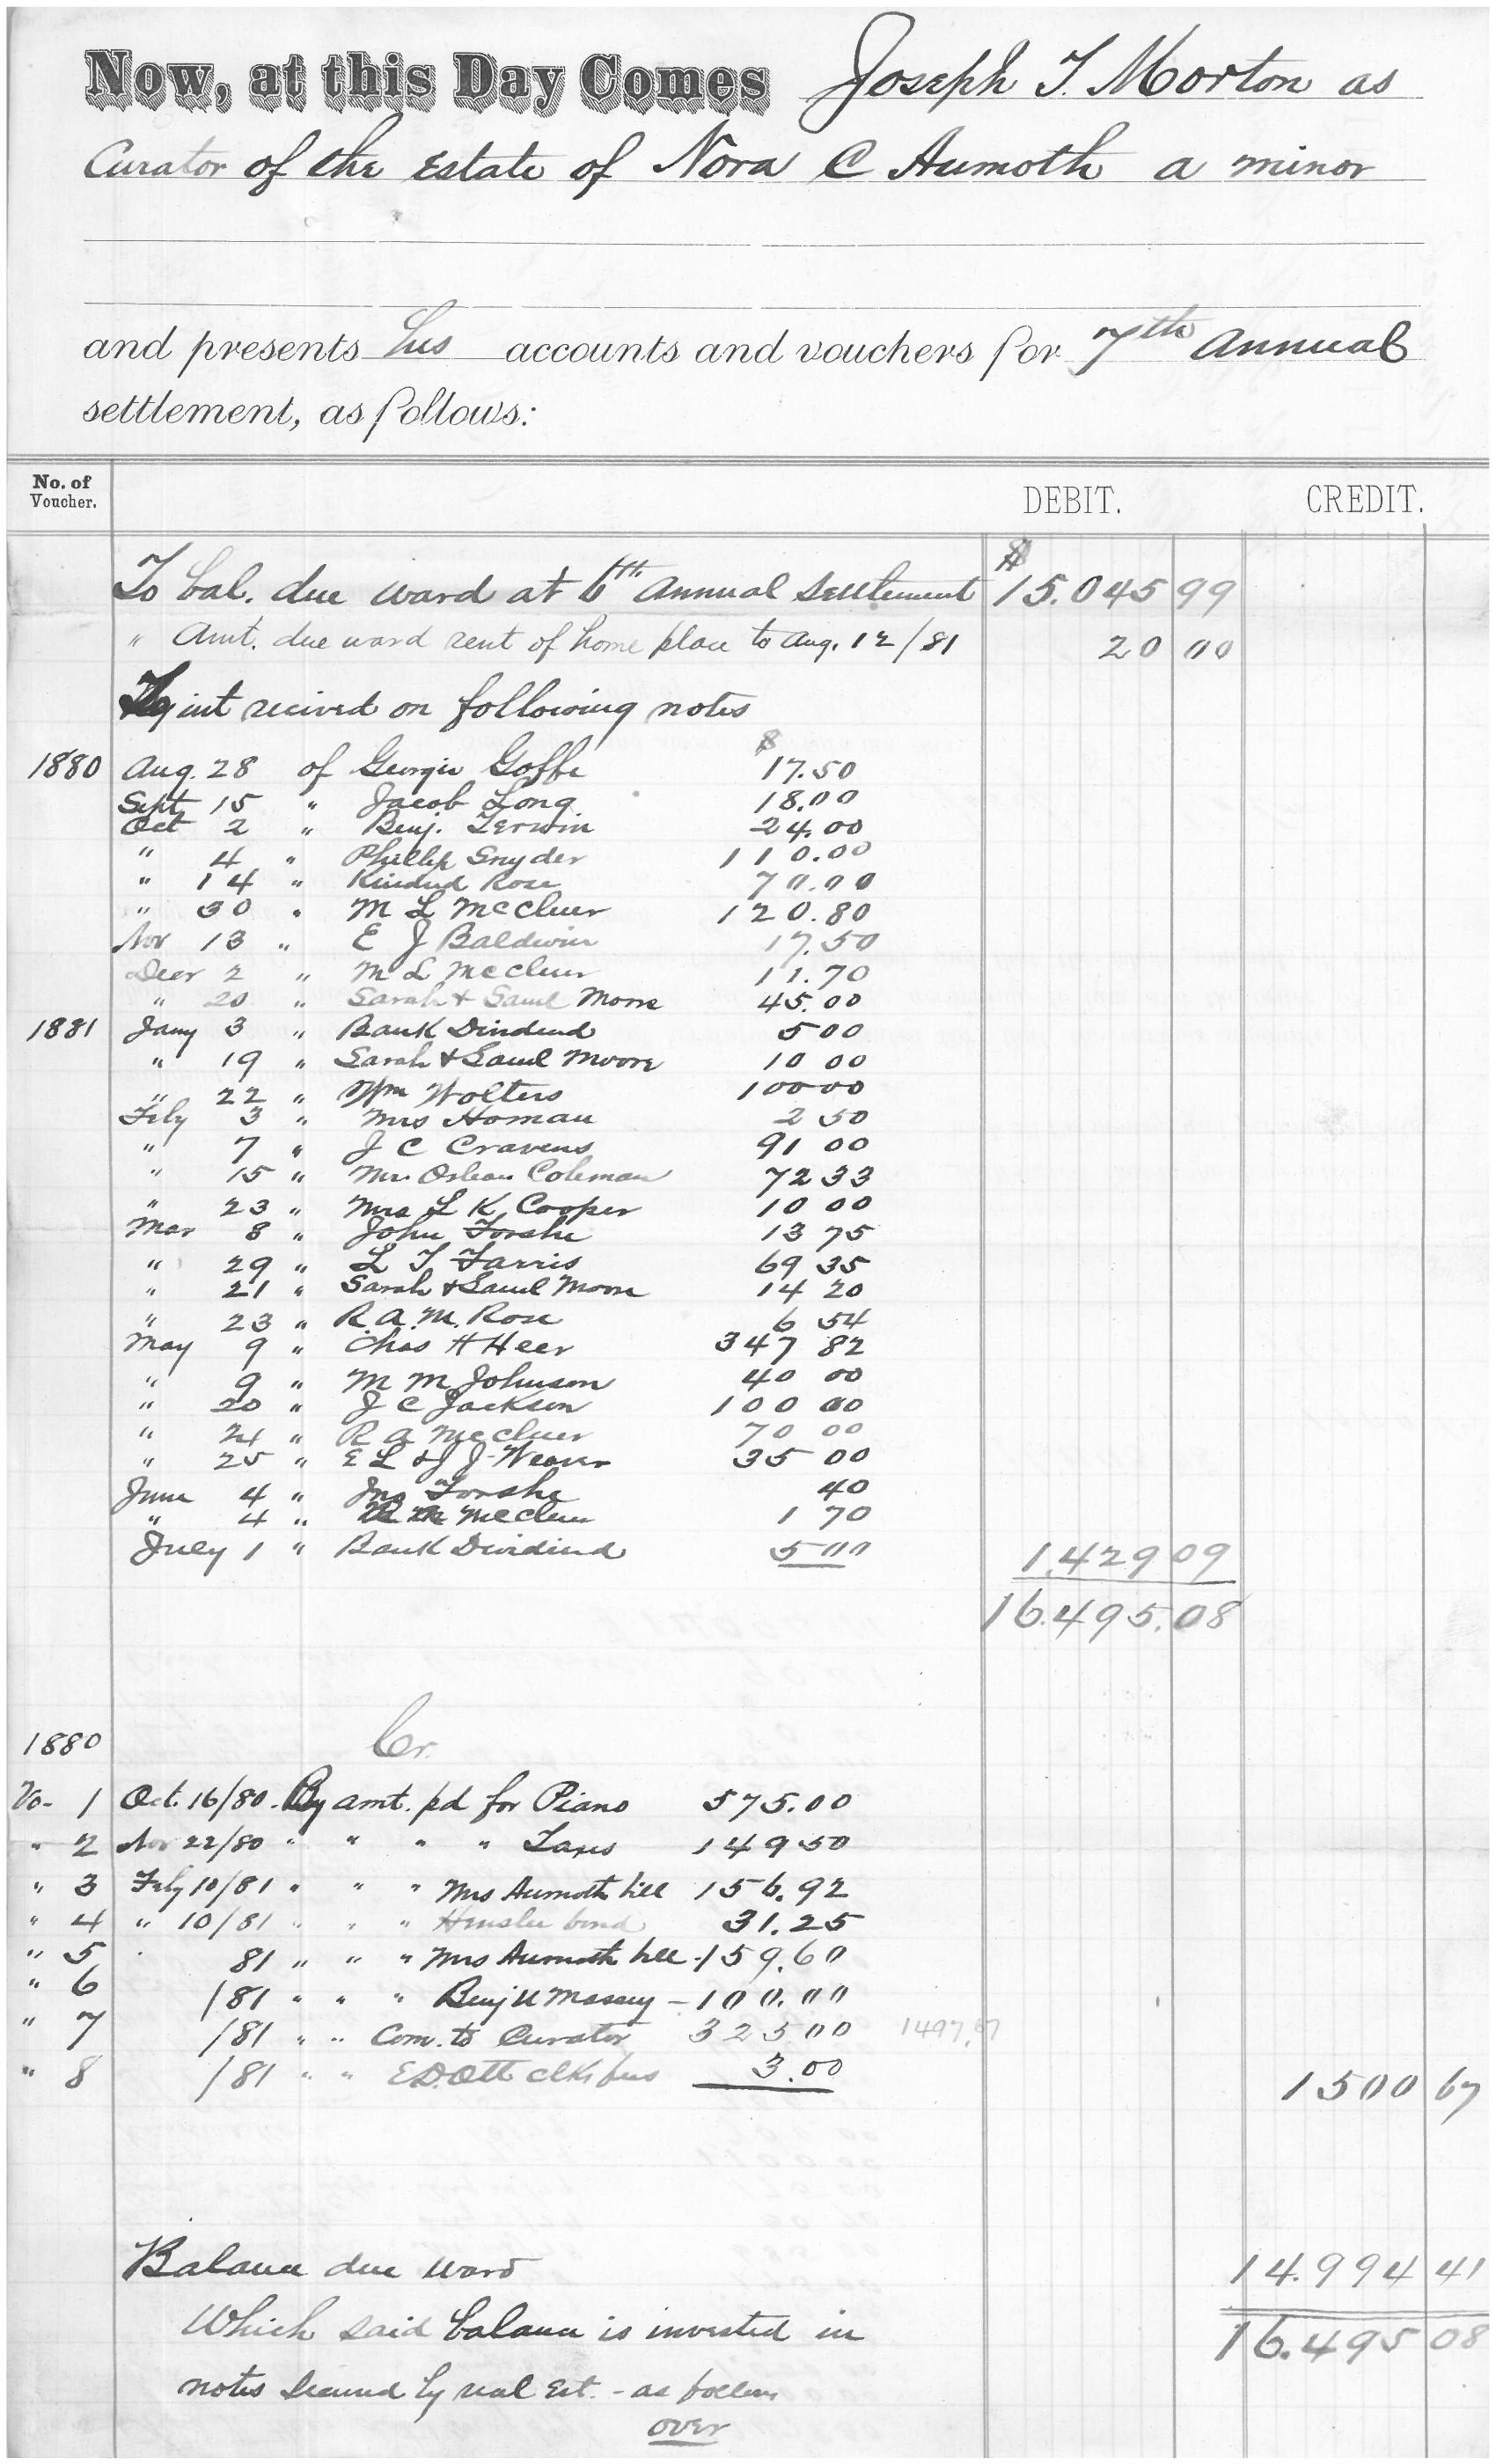 Now, at this Day Comes Joseph T. Morton as
Curator of the Estate of Nora C Aumoth a minor
and presents his accounts and vouchers for 7th Annual
settlement, as follows:
No. of Voucher. DEBIT. CREDIT.
To bal. due ward at 6th Annual Settlement $15.045 99
" Amt. due ward rent of home place to Aug. 12/81 20 00
int recived on following notes
1880 Aug. 28 of George Goffe $ 17.50
Sept 15 " Jacob Long 18.00
Oct 2 " Benj. 24.00
" 4 " Phillip Snyder 110.00
" 14 " Kindred Rose 70.00
" 30 " M L McCluer 120.80
Nov 13 " E J Baldwin 17.50
Decr 2 " M L McCluer 11.70
" 20 " Sarah & Saml Moore 45.00
1881 Jany 3 " Bank Dividend 5 00
" 19 " Sarah & Saml Moore 10 00
" 22 " Wm Wolters 100 00
Feby 3 " Mrs Homan 2 50
" 7 " J C Cravens 91 00
" 15 " Coleman 72 33
" 23 " Mrs L K Cooper 10 00
Mar 8 " John Forshe 13 75
" 29 " L T Farris 69 35
" 21 " Sarah & Saml Moore 14 20
" 23 " R. A. M. Rose 6 54
May 9 " Chas H Heer 347 82
" 9 " M M Johnson 40 00
" 20 " J C Jackson 100 00
" 24 " R A McCluer 70 00
" 25 " E L & J J Weaver 35 00
June 4 " Jno Forshe 40
" 4 " McCluer 1 70
July 1 " Bank Dividend 5 00 1.429 09
16.495.08
1880 Cr.
Vo- 1 Oct. 16/80. By amt. pd for Piano 575.00
" 2 Nov 22/80 " " " " Taxes 149 50
" 3 Feby 10/81 " " " Mrs Aumoth bill 156.92
" 4 " 10/81 " " " bond 31.25
" 5 81 " " " Mrs Aumoth bill - 159.60
" 6 /81 " " " Benj U Massey - 100.00
" 7 /81 " " Com. to Curator 325 00 1497.67
" 8 /81 " " E.D. Ott clks fees 3.00
1500 67
Balance due ward 14.994 41
Which said balance is invested in 16.495 08
notes secured by real Est. - as follows
over